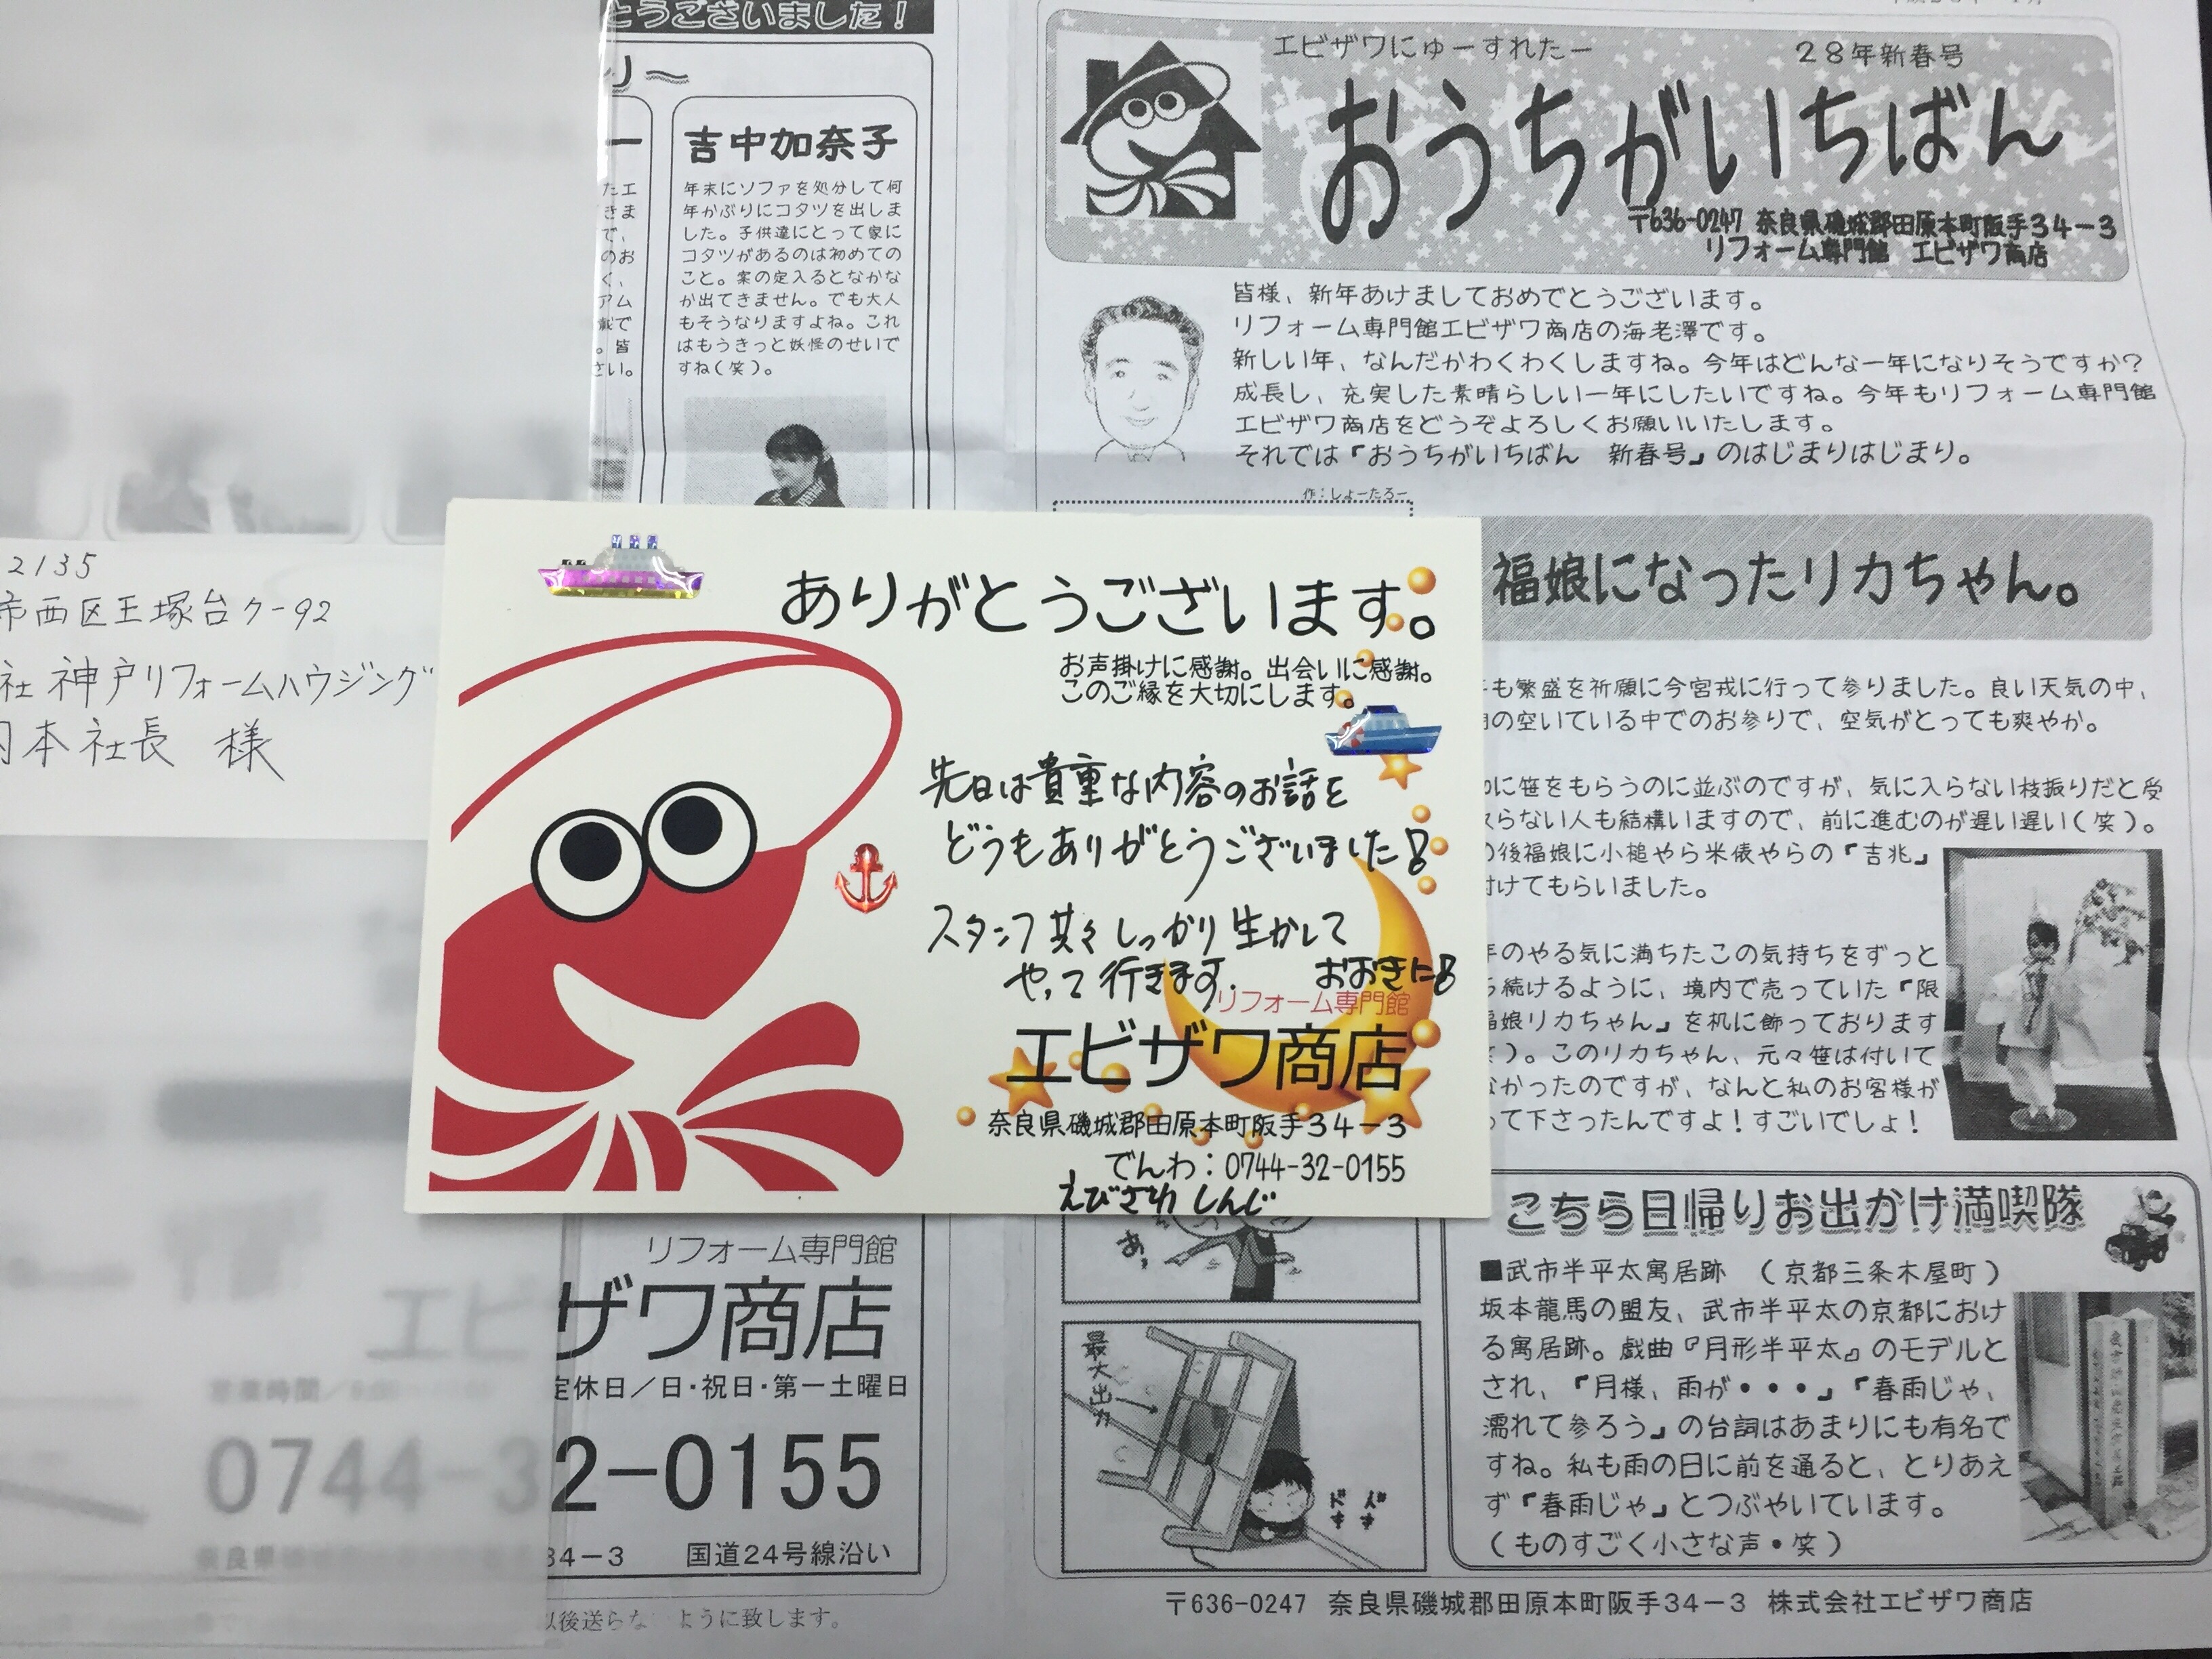 とうございました！
吉中加奈子
年末にソファを処分して何
年かぶりにコタツを出しま
した。子供達にとって家に
コタツがあるのは初めての
こと。案の定入るとなかな
か出てきません。でも大人
もそうなりますよね。これ
はもうきっと妖怪のせいで
すね(笑)。
エビザワにゅーすれたー
28年新春号
おうちがいちばん
〒636-0247 奈良県磯城郡田原本町阪手34-3
リフォーム専門館 エビザワ商店
皆様、新年あけましておめでとうございます。
リフォーム専門館エビザワ商店の海老澤です。
新しい年、なんだかわくわくしますね。今年はどんな一年になりそうですか？
成長し、充実した素晴らしい一年にしたいですね。今年もリフォーム専門館
エビザワ商店をどうぞよろしくお願いいたします。
それでは『おうちがいちばん 新春号』のはじまりはじまり。
作:しょーたろー
福娘になったリカちゃん。
も繁盛を祈願に今宮戎に行って参りました。良い天気の中、
の空いている中でのお参りで、空気がとっても爽やか。
に笹をもらうのに並ぶのですが、気に入らない枝振りだと受
らない人も結構いますので、前に進むのが遅い遅い(笑)。
後福娘に小槌やら米俵やらの『吉兆』
付けてもらいました。
年のやる気に満ちたこの気持ちをずっと
続けるように、境内で売っていた『限
福娘リカちゃん』を机に飾っております
)。このリカちゃん、元々笹は付いて
なかったのですが、なんと私のお客様が
って下さったんですよ！すごいでしょ！
2135
市西区王塚台7-92
社 神戸リフォームハウジング
本社長 様
ありがとうございます。
お声掛けに感謝。出会いに感謝。
このご縁を大切にします。
先日は貴重な内容のお話を
どうもありがとうございました!
スタッフ共々しっかり生かして
やって行きます. おおきに!
リフォーム専門館
エビザワ商店
奈良県磯城郡田原本町阪手34-3
でんわ：0744-32-0155
えびさわ しんじ
リフォーム専門館
エビザワ商店
定休日／日・祝日・第一土曜日
0744-32-0155
34-3 国道24号線沿い
以後送らな ように致します。
あっ
最大出力
ドキ
バキ
こちら日帰りお出かけ満喫隊
■武市半平太寓居跡 (京都三条木屋町)
坂本龍馬の盟友、武市半平太の京都におけ
る寓居跡。戯曲『月形半平太』のモデルと
され、『月様、雨が・・・』『春雨じゃ、
濡れて参ろう』の台詞はあまりにも有名で
すね。私も雨の日に前を通ると、とりあえ
ず『春雨じゃ』とつぶやいています。
(ものすごく小さな声・笑)
〒636-0247 奈良県磯城郡田原本町阪手34-3 株式会社エビザワ商店